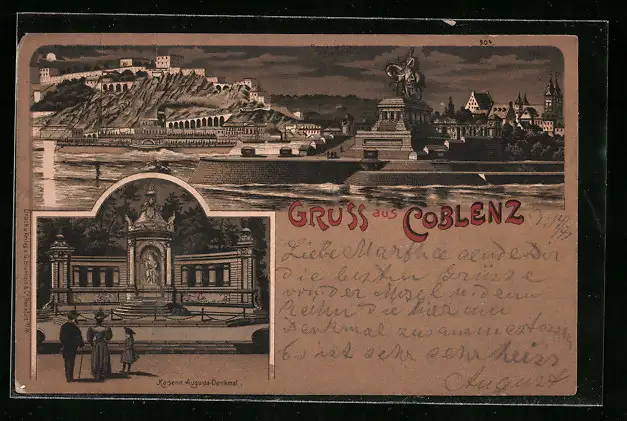 904
GRUSS aus COBLENZ
Liebe Martha sende Dir
die besten Grüsse
von der Mosel u. dem
Rhein die hier am
Denkmal zusammen
Es ist sehr sehr heiss
August
Kaiserin Augusta-Denkmal.